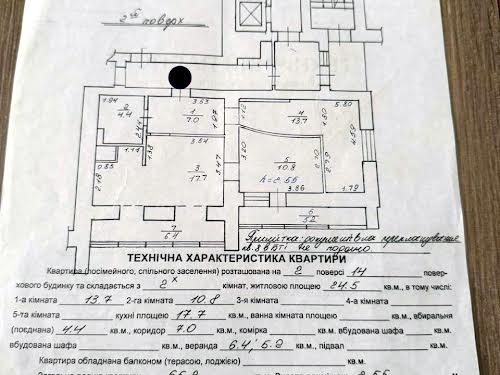 2ий поверх
1.94
2
4.4
2.44
3.53
1
7.0
1.97
1.12
4
13.7
1.80
5.80
4.59
1.11
0.85
2.18
1.38
3.54
3
17.7
3.47
3.20
5
10.8
h=2.55
3.86
2.62
1.79
7
6.4
6
5.2
Примітка: документів на перепланування
не подано.
ТЕХНІЧНА ХАРАКТЕРИСТИКА КВАРТИРИ
Квартира (посімейного, спільного заселення) розташована на 2 поверсі 14 повер-
хового будинку та складається з 2х кімнат, житловою площею 24.5 кв.м., в тому числі:
1-а кімната 13.7 2-га кімната 10.8 3-я кімната кв.м. 4-а кімната
5-та кімната кухні площею 17.7 кв.м., ванна кімната площею кв.м., вбиральня
(поєднана) 4.4 кв.м., коридор 7.0 кв.м., комірка кв.м., вбудована шафа кв.м.
вбудована шафа кв.м., веранда 6.4; 5.2 кв.м., підвал кв.м.
Квартира обладнана балконом (терасою, лоджією) кв.м.